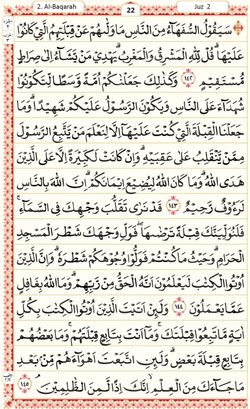 2. Al-Baqarah 22 Juz 2
سَيَقُوْلُ السُّفَهَآءُ مِنَ النَّاسِ مَا وَلّٰىهُمْ عَنْ قِبْلَتِهِمُ الَّتِيْ كَانُوْا
عَلَيْهَا ۗ قُلْ لِّلّٰهِ الْمَشْرِقُ وَالْمَغْرِبُ ۗ يَهْدِيْ مَنْ يَّشَآءُ اِلٰى صِرَاطٍ
مُّسْتَقِيْمٍ ١٤٢ وَكَذٰلِكَ جَعَلْنٰكُمْ اُمَّةً وَّسَطًا لِّتَكُوْنُوْا
شُهَدَآءَ عَلَى النَّاسِ وَيَكُوْنَ الرَّسُوْلُ عَلَيْكُمْ شَهِيْدًا ۗ وَمَا
جَعَلْنَا الْقِبْلَةَ الَّتِيْ كُنْتَ عَلَيْهَآ اِلَّا لِنَعْلَمَ مَنْ يَّتَّبِعُ الرَّسُوْلَ
مِمَّنْ يَّنْقَلِبُ عَلٰى عَقِبَيْهِ ۗ وَاِنْ كَانَتْ لَكَبِيْرَةً اِلَّا عَلَى الَّذِيْنَ
هَدَى اللّٰهُ ۗ وَمَا كَانَ اللّٰهُ لِيُضِيْعَ اِيْمَانَكُمْ ۗ اِنَّ اللّٰهَ بِالنَّاسِ
لَرَءُوْفٌ رَّحِيْمٌ ١٤٣ قَدْ نَرٰى تَقَلُّبَ وَجْهِكَ فِى السَّمَآءِ ۚ
فَلَنُوَلِّيَنَّكَ قِبْلَةً تَرْضٰىهَا ۖ فَوَلِّ وَجْهَكَ شَطْرَ الْمَسْجِدِ
الْحَرَامِ ۗ وَحَيْثُ مَا كُنْتُمْ فَوَلُّوْا وُجُوْهَكُمْ شَطْرَهٗ ۗ وَاِنَّ الَّذِيْنَ
اُوْتُوا الْكِتٰبَ لَيَعْلَمُوْنَ اَنَّهُ الْحَقُّ مِنْ رَّبِّهِمْ ۗ وَمَا اللّٰهُ بِغَافِلٍ
عَمَّا يَعْمَلُوْنَ ١٤٤ وَلَئِنْ اَتَيْتَ الَّذِيْنَ اُوْتُوا الْكِتٰبَ بِكُلِّ
اٰيَةٍ مَّا تَبِعُوْا قِبْلَتَكَ ۚ وَمَآ اَنْتَ بِتَابِعٍ قِبْلَتَهُمْ ۚ وَمَا بَعْضُهُمْ
بِتَابِعٍ قِبْلَةَ بَعْضٍ ۗ وَلَئِنِ اتَّبَعْتَ اَهْوَآءَهُمْ مِّنْ بَعْدِ
مَا جَآءَكَ مِنَ الْعِلْمِ ۙ اِنَّكَ اِذًا لَّمِنَ الظّٰلِمِيْنَ ١٤٥